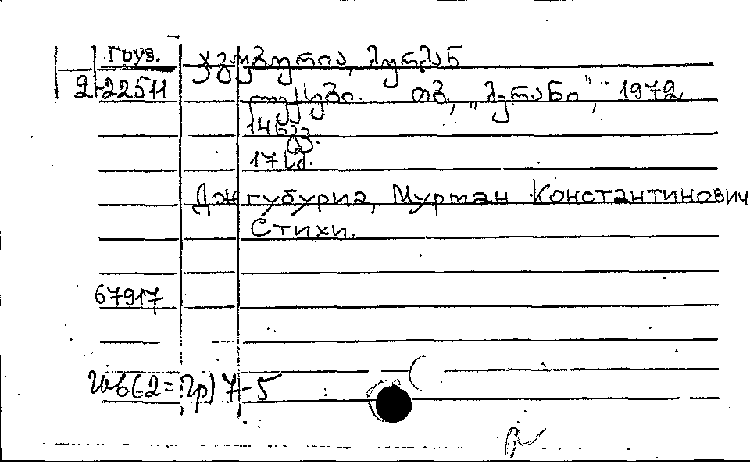 Груз. ჯგუბურია, მურმან
2-22511 ლექსები. თბ., „მერანი“, 1972
14 გვ.
17 სმ.
Джгубуриа, Мурман Константинович
Стихи.
67917
Ш6(2=Гр)7-5